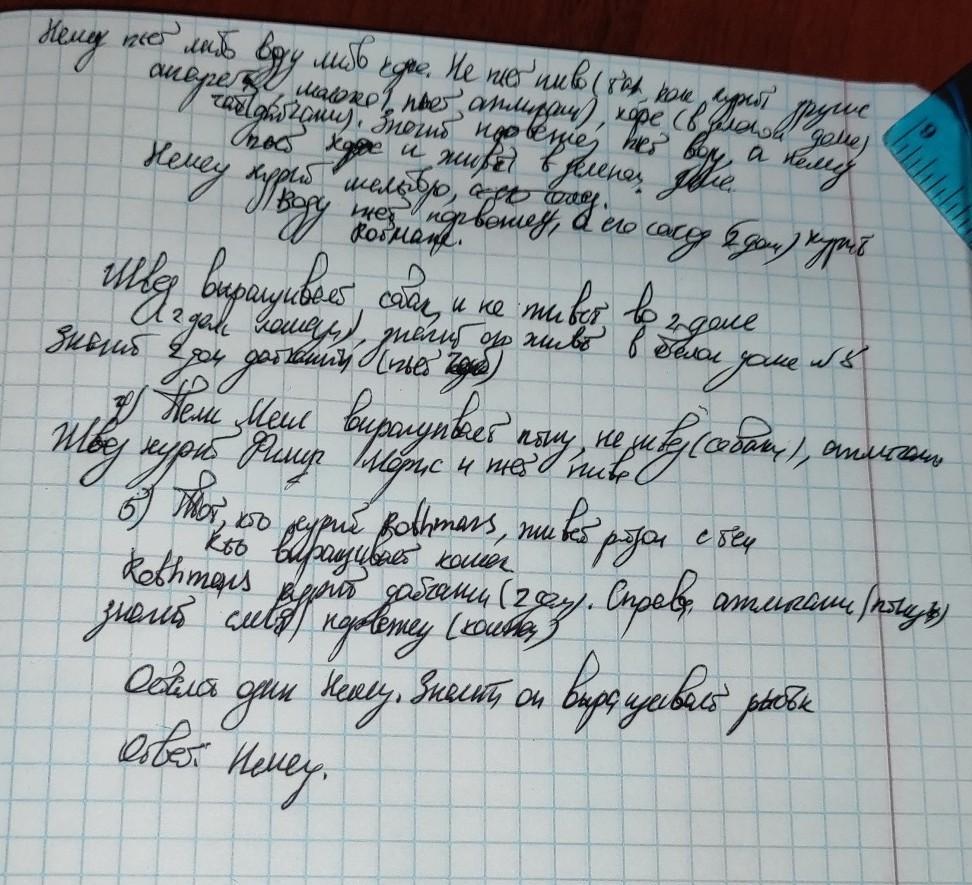 Немец пьёт либо воду либо кофе. Не пьёт пиво (так как курит другие
сигареты, молоко (пьёт англичанин), кофе (в зелёном доме)
чай (датчанин). Значит норвежец пьёт воду, а немец
пьёт кофе и живёт в зелёном доме.
Немец курит мальборо,
Воду пьёт норвежец, а его сосед (2 дом) курит
Ротманс.
Швед выращивает собак и не живёт во 2 доме
(2 дом лошади), значит он живёт в белом доме №5
Значит 2 дом датчанин (пьёт чай)
4) Пелл Мелл выращивает птиц, не швед (собаки), англичанин
Швед курит Филип Морис и пьёт пиво
5) Тот, кто курит Rothmans, живёт рядом с тем
кто выращивает кошек
Rothmans курит датчанин (2 дом). Справа англичанин (птицы)
значит слева норвежец (кошка)
Остался один Немец. Значит он выращивает рыбок
Ответ: Немец.
9